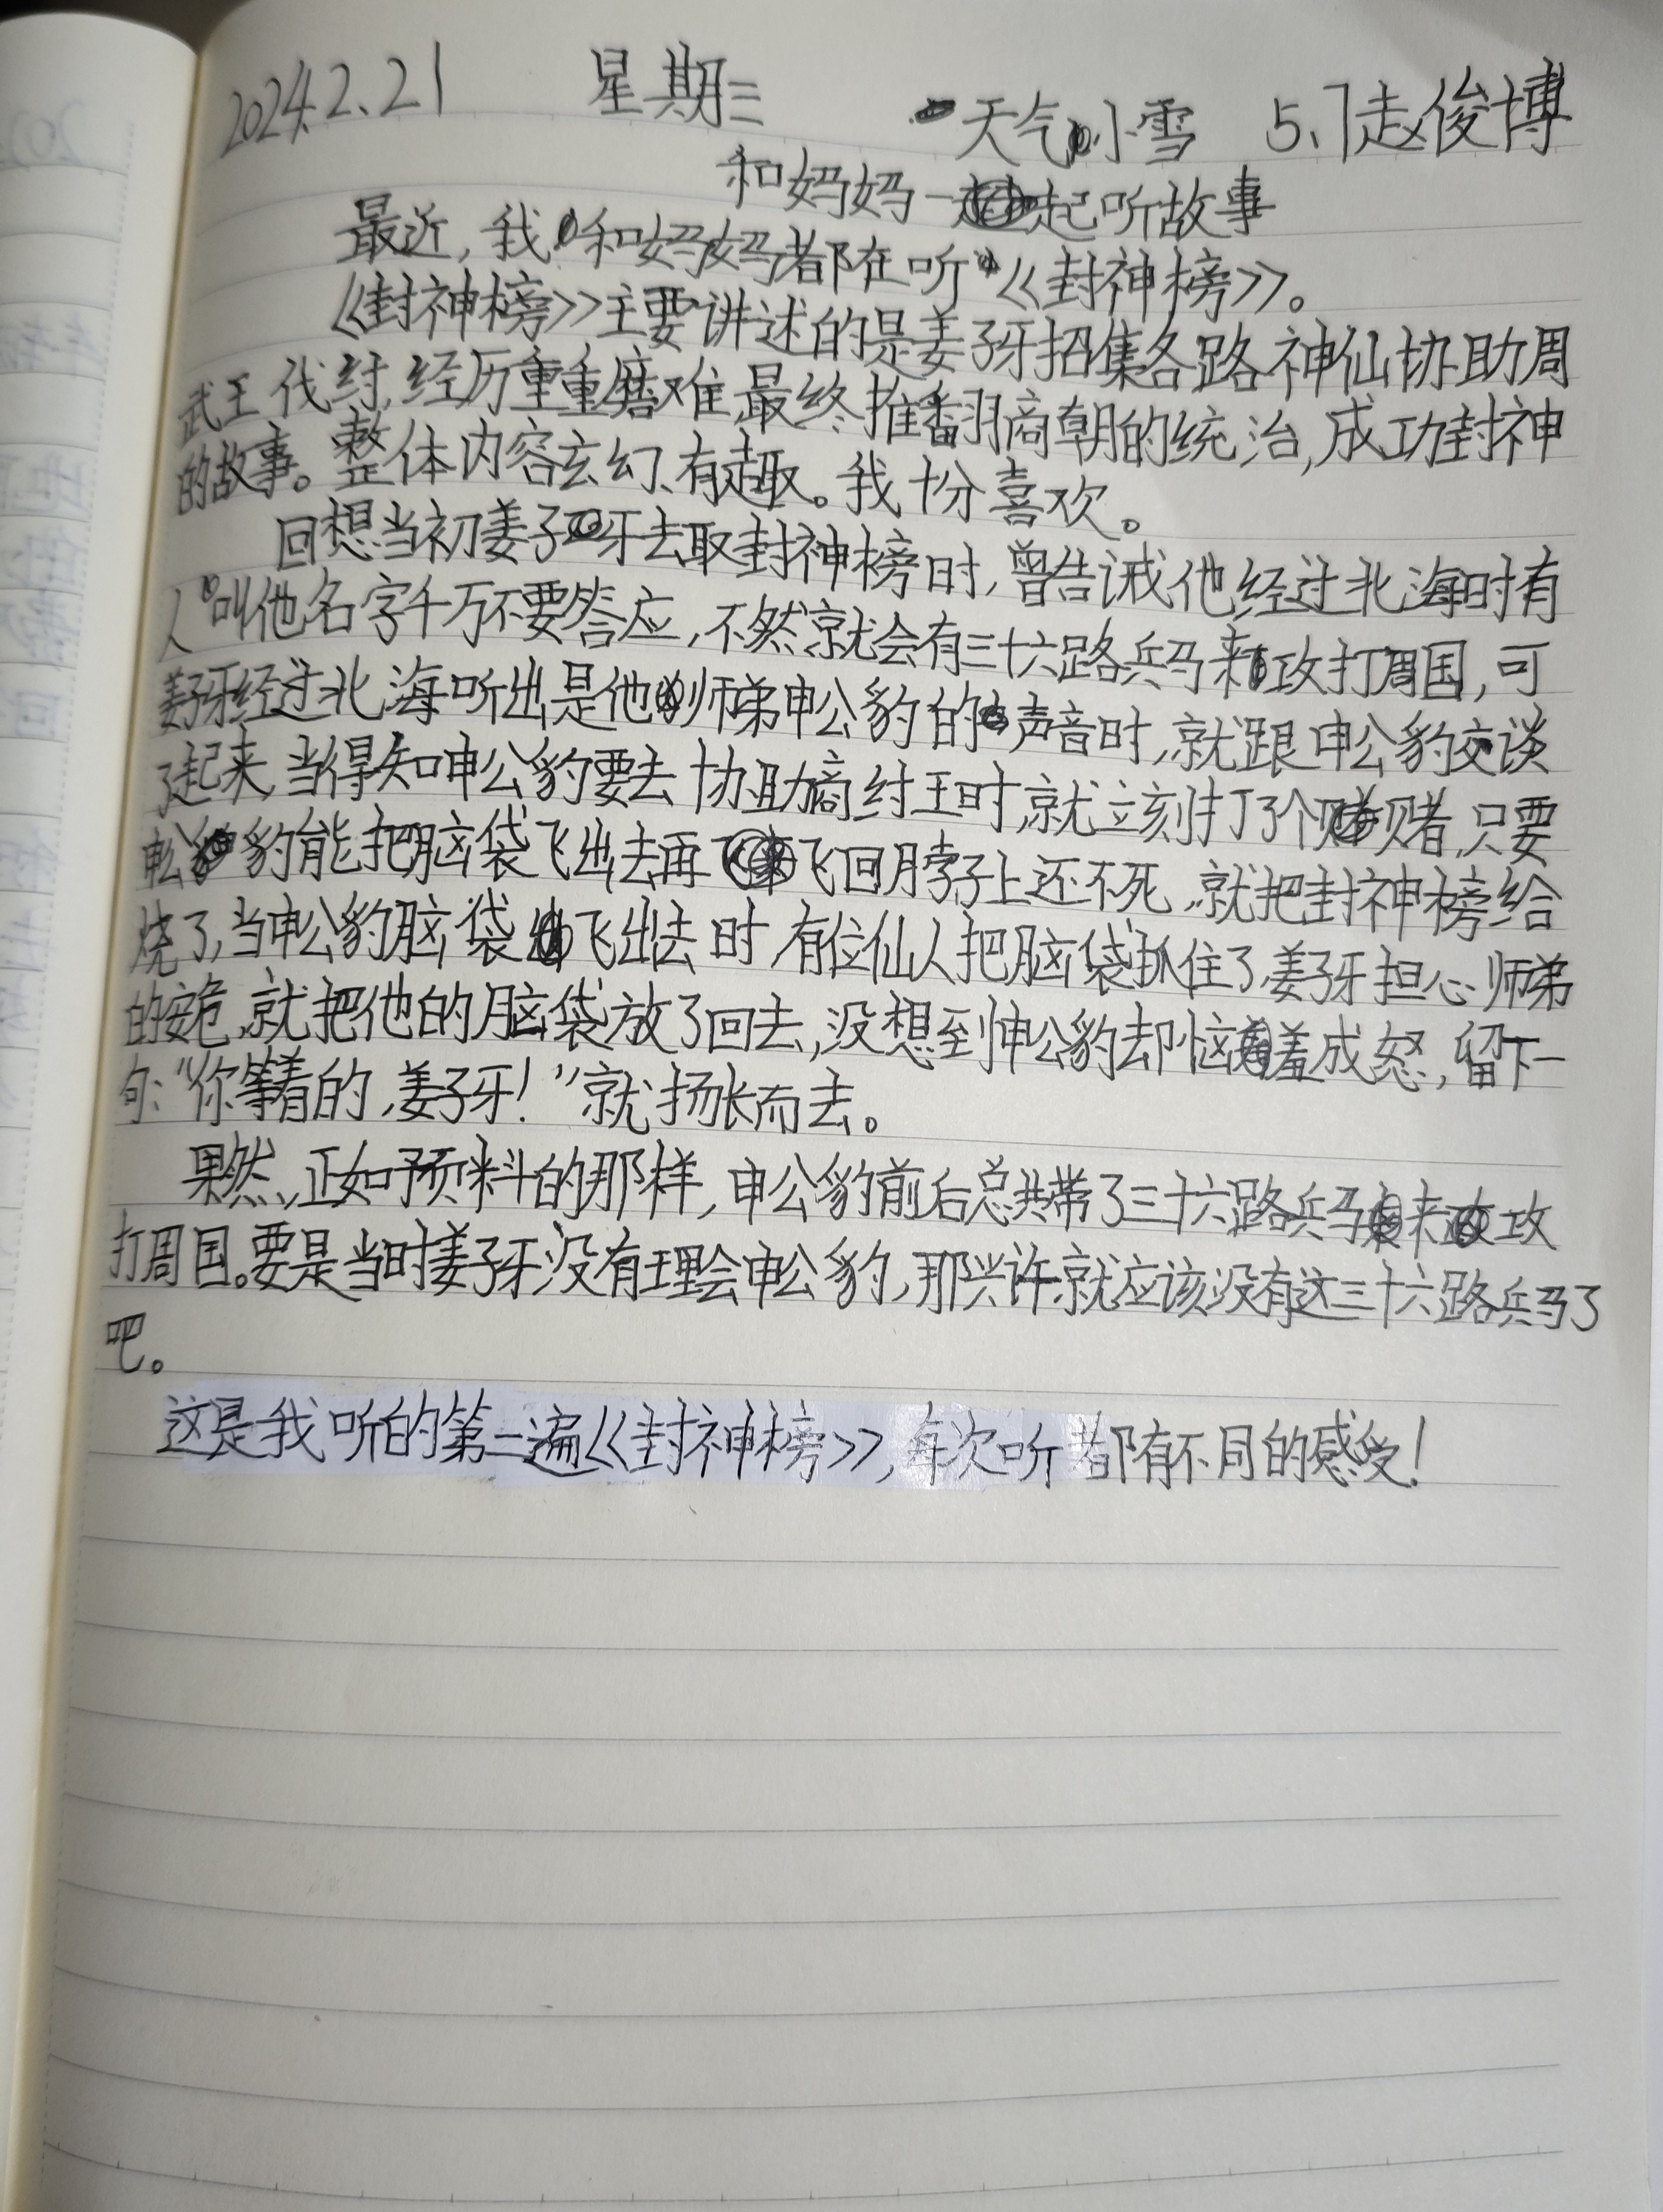 2024.2.21 星期三 天气小雪 5.7赵俊博
和妈妈一起听故事
最近,我和妈妈都在听《封神榜》。
《封神榜》主要讲述的是姜子牙招集各路神仙协助周
武王伐纣,经历重重磨难,最终推翻商朝的统治,成功封神
的故事。整体内容玄幻、有趣。我十分喜欢。
回想当初姜子牙去取封神榜时,曾告诫他经过北海时有
人叫他名字千万不要答应,不然就会有三十六路兵马来攻打周国,可
姜子牙经过北海听出是他师弟申公豹的声音时,就跟申公豹交谈
了起来,当得知申公豹要去协助商纣王时,就立刻打了个赌,只要
申公豹能把脑袋飞出去再飞回脖子上还不死,就把封神榜给
烧了,当申公豹脑袋飞出去时,有位仙人把脑袋抓住了,姜子牙担心师弟
的安危,就把他的脑袋放了回去,没想到申公豹却恼羞成怒,留下一
句:“你等着的,姜子牙!”就扬长而去。
果然,正如预料的那样,申公豹前后总共带了三十六路兵马来攻
打周国。要是当时姜子牙没有理会申公豹,那兴许就应该没有这三十六路兵马了
吧。
这是我听的第二遍《封神榜》,每次听都有不同的感受!